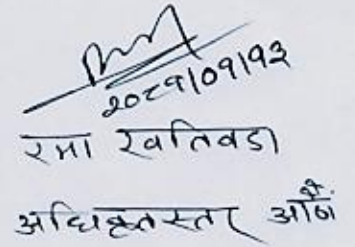 २०८१|०१|१३
रमा खतिवडा
अधिकृतस्तर आठौं